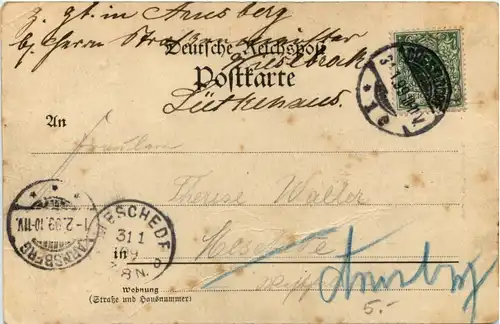 z. Zt. in Arnsberg
b/ Herrn Straßenmeister
Deutsche Reichspost
Postkarte
Lütkehaus.
An
Fräulein
Therese Walter
Meschede
Arnsberg
MESCHEDE
31 1
8 N.
ARNSBERG
1-2.99.10-11V.
in
Wohnung
(Straße und Hausnummer)
5.-